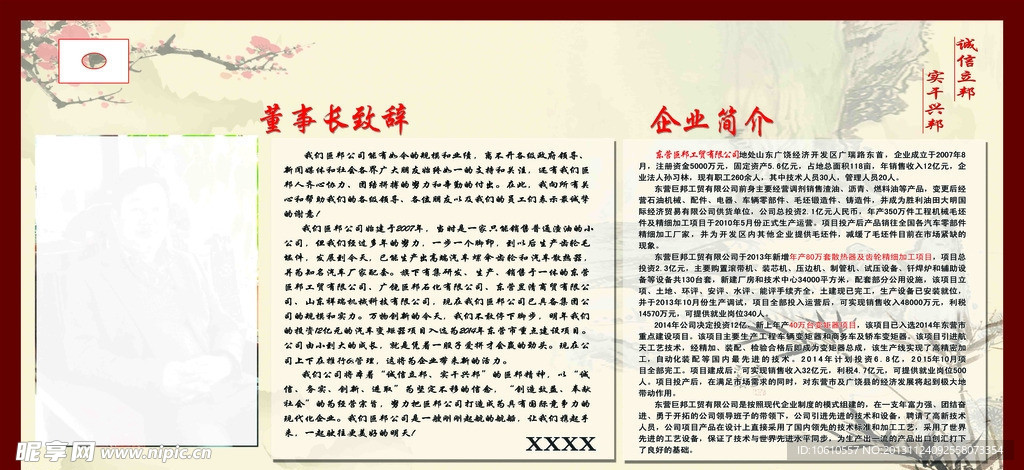 诚信立邦
实干兴邦
董事长致辞
我们巨邦公司能有如今的规模和业绩,离不开各级政府领导、
新闻媒体和社会各界广大朋友始终如一的支持和关注,还有我们巨
邦人齐心协力、团结拼搏的努力和辛勤的付出。在此,我向所有关
心和帮助我们的各级领导、各位朋友以及我们的员工们表示最诚挚
的谢意!
我们巨邦公司始建于2007年,当时是一家只能销售普通渣油的小
公司,但我们经过多年的努力,一步一个脚印,到以后生产齿轮毛
锻件,发展到今天,已能生产出高端汽车螺伞齿轮和汽车散热器,
并为知名汽车厂家配套。旗下有集研发、生产、销售于一体的东营
巨邦工贸有限公司、广饶巨邦石化有限公司、东营昱倚商贸有限公
司、山东祥瑞机械科技有限公司,现在我们巨邦公司已具备集团公
司的规模和实力。万物创新的今天,我们不敢停下脚步,明年我们
的投资12亿元的汽车变矩器项目入选为2014年东营市重点建设项目。
公司由小到大的成长,就是凭着一股子爱拼才会赢的劲头。现在公
司上下在推行6s管理,这将为企业带来新的活力。
我们公司将本着“诚信立邦、实干兴邦”的巨邦精神,以“诚
信、务实、创新、进取”为坚定不移的信念,“创造效益、奉献
社会”的为经营宗旨,努力把巨邦公司打造成为具有国际竞争力的
现代化企业。我们巨邦公司是一艘刚刚起航的舰船,让我们携起手
来,一起驶往更美好的明天!
XXXX
企业简介
东营巨邦工贸有限公司地处山东广饶经济开发区广瑞路东首,企业成立于2007年8
月,注册资金5000万元,固定资产5.6亿元,占地总面积118亩,年销售收入12亿元,企
业法人孙习林,现有职工260余人,其中技术人员30人,管理人员20人。
东营巨邦工贸有限公司前身主要经营调剂销售渣油、沥青、燃料油等产品,变更后经
营石油机械、配件、电器、车辆零部件、毛坯锻造件、铸造件,并成为胜利油田大明国
际经济贸易有限公司供货单位,公司总投资2.1亿元人民币,年产350万件工程机械毛坯
件及精细加工项目于2010年5月份正式生产运营。项目投产后产品销往全国各汽车零部件
精细加工厂家,并为开发区内其他企业提供毛坯件,减缓了毛坯件目前在市场紧缺的
现象。
东营巨邦工贸有限公司于2013年新增年产80万套散热器及齿轮精细加工项目,项目总
投资2.3亿元,主要购置滚带机、装芯机、压边机、制管机、试压设备、钎焊炉和辅助设
备等设备共130台套,新建厂房和技术中心34000平方米,配套部分公用设施,该项目立
项、土地、环评、安评、水评、能评手续齐全,土建现已完工,生产设备已安装就位,
并于2013年10月份生产调试,项目全部投入运营后,可实现销售收入48000万元,利税
14570万元,可提供就业岗位340人。
2014年公司决定投资12亿,新上年产40万台变矩器项目,该项目已入选2014年东营市
重点建设项目。该项目主要生产工程车辆变矩器和商务车及轿车变矩器。该项目引进航
天工艺技术,经精加、装配、检验合格后即成为变矩器总成,该生产线实现了高精密加
工,自动化装配等国内最先进的技术。2014年计划投资6.8亿,2015年10月项
目全部完工。项目建成后,可实现销售收入32亿元,利税4.7亿元,可提供就业岗位500
人。项目投产后,在满足市场需求的同时,对东营市及广饶县的经济发展将起到极大地
带动作用。
东营巨邦工贸有限公司是按照现代企业制度的模式组建的,在一支年富力强、团结奋
进、勇于开拓的公司领导班子的带领下,公司引进先进的技术和设备,聘请了高新技术
人员,公司项目产品在设计上直接采用了国内领先的技术标准和加工工艺,采用了世界
先进的工艺设备,保证了技术与世界先进水平同步,为生产出一流的产品出口创汇打下
了良好的基础。
昵享网 www.nipic.cn
ID:10610557 NO:20131124092558073354